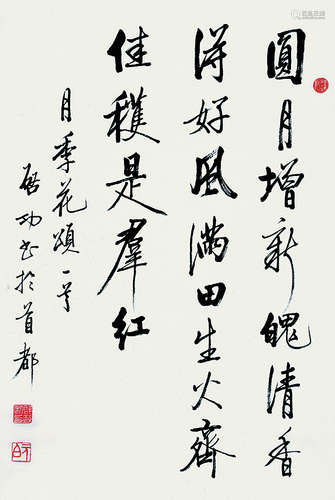 圓月增新魄清香
浮好風滿田生火齊
佳穫是羣紅
月季花頌一首
啟功書於首都